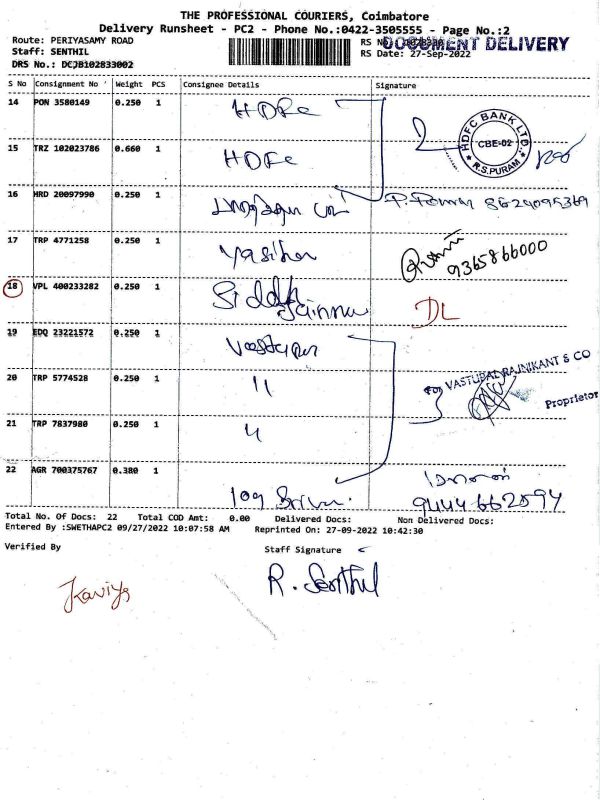 THE PROFESSIONAL COURIERS, Coimbatore
Delivery Runsheet - PC2 - Phone No.:0422-3505555 - Page No.:2
Route: PERIYASAMY ROAD
DOCUMENT DELIVERY
Staff: SENTHIL
RS Date: 27-Sep-2022
DRS No.: DCJB102833002
S No Consignment No Weight PCS Consignee Details Signature
14 PON 3580149 0.250 1 HDFC
HDFC BANK LTD
CBE-02
R.S.PURAM
15 TRZ 102023786 0.660 1 HDFC
16 HRD 20097990 0.250 1
17 TRP 4771258 0.250 1
9365866000
18 VPL 400233282 0.250 1 Siddh DL
Jainnu
19 EDQ 23221572 0.250 1
20 TRP 5774528 0.250 1 11
For VASTUPAL RAJNIKANT & CO
Proprietor
21 TRP 7837980 0.250 1 4
22 AGR 700375767 0.380 1
9444662594
Total No. Of Docs: 22 Total COD Amt: 0.00 Delivered Docs: Non Delivered Docs:
Entered By :SWETHAPC2 09/27/2022 10:07:58 AM Reprinted On: 27-09-2022 10:42:30
Verified By Staff Signature
Kaviya
R. Senthil